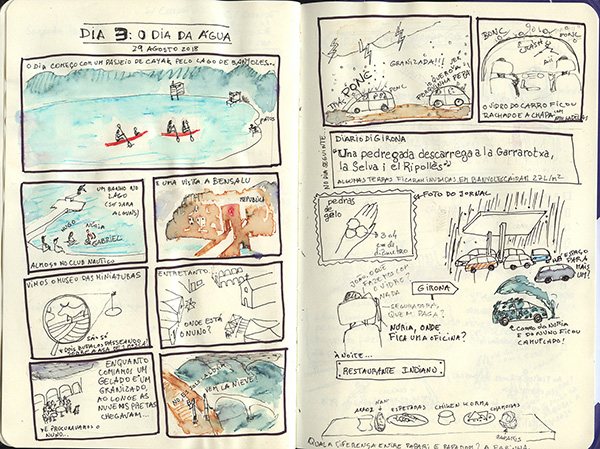 DIA 3: O DIA DA ÁGUA
29 AGOSTO 2018
O DIA COMEÇOU COM UM PASSEIO DE CAYAK PELO LAGO DE BANYOLES..
PATOS
UM BANHO NO
LAGO
(SÓ PARA
ALGUNS)
HUGO
NÚRIA
GABRIEL
ALMOÇO NO CLUB NAUTICO
E UMA VISITA A BESALU
REPUBLICA
VIMOS O MUSEO DAS MINIATURAS
SÃO SÓ
ENTRETANTO,
ONDE ESTÁ
O NUNO?
ENQUANTO
COMIAMOS UM
GELADO E UM
GRANIZADO,
AO LONGE AS
NUVENS PRETAS
CHEGAVAM...
E PROCURAVAMOS O
NUNO...
VEM LA NIEVE!
GRANIZADA!!!
PONC
PONC
TRAC
BONC
CRASH
PONC
O VIDRO DO CARRO FICOU
RACHADO E A CHAPA
NO DIA SEGUINTE
DIARIO DI GIRONA
"Una pedregada descarrega a la Garrarotxa,
la Selva i el Ripollès"
ALGUMAS TERRAS FICARAM INUNDADAS. EM BANYOLES CAIRAM 27L/m2
pedras
de gelo
3 a 4
cm de
diametro
FOTO DO JORNAL
UM ESPAÇO
PARA
MAIS
UM?
O CARRO DA NÚRIA
E DO NUNO FICOU
CAMUFLADO!
GIRONA
NÚRIA, ONDE
FICA UMA OFICINA?
À NOITE...
RESTAURANTE INDIANO
ARROZ
NAN
ESPETADAS
CHIKEN KORMA
CHAMUÇAS
PAPARIS
QUAL A DIFERENÇA ENTRE PAPARI E PAPADOM? A FARINHA.